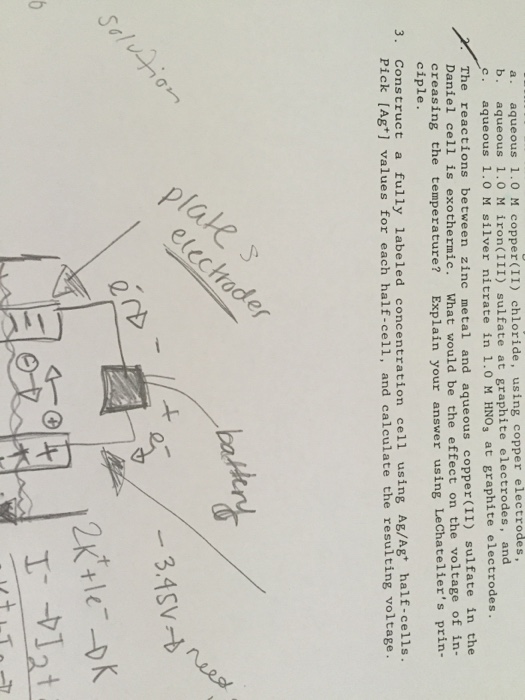 a. aqueous 1.0 M copper(II) chloride, using copper electrodes,
b. aqueous 1.0 M iron(III) sulfate at graphite electrodes, and
c. aqueous 1.0 M silver nitrate in 1.0 M HNO₃ at graphite electrodes.
2. The reactions between zinc metal and aqueous copper(II) sulfate in the
Daniel cell is exothermic. What would be the effect on the voltage of in-
creasing the temperature? Explain your answer using LeChatelier's prin-
ciple.
3. Construct a fully labeled concentration cell using Ag/Ag⁺ half-cells.
Pick [Ag⁺] values for each half-cell, and calculate the resulting voltage.
solution
plates
electrodes
battery
e⁻
- +
e⁻
- 3.45V → need
2K⁺ + 1e⁻ → K
I⁻ → I₂ +